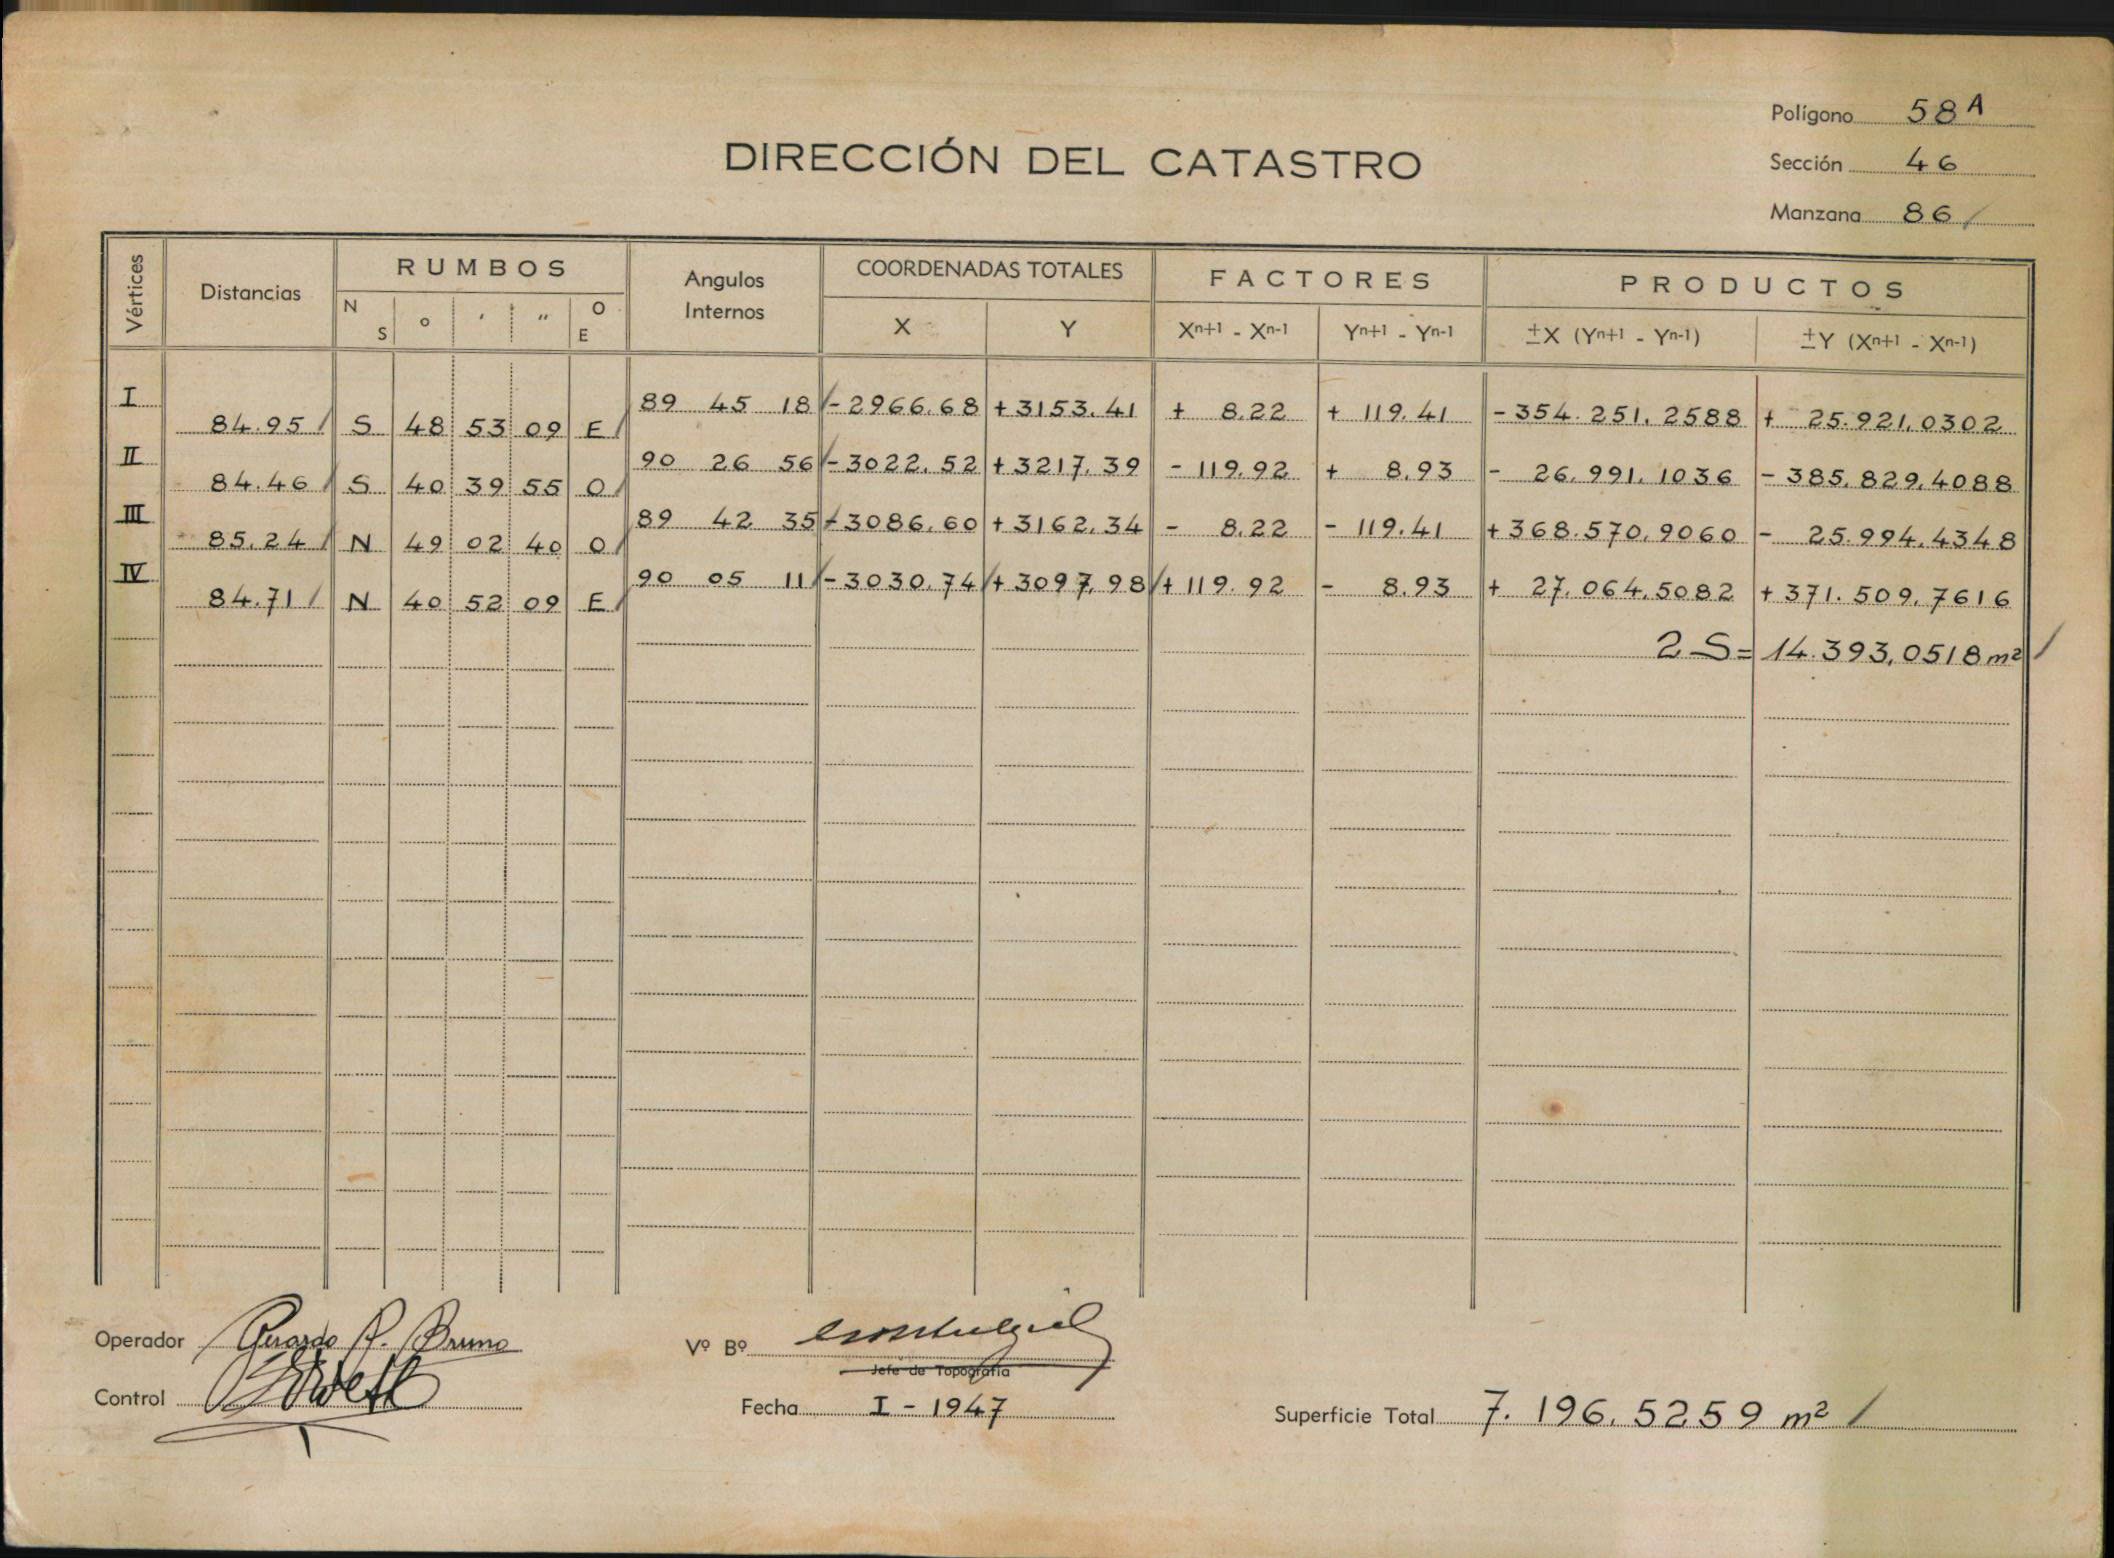 Polígono 58A
Sección 46
Manzana 86
DIRECCIÓN DEL CATASTRO
Vértices Distancias RUMBOS Angulos Internos COORDENADAS TOTALES FACTORES PRODUCTOS
N S ° ' " O E X Y Xn+1 - Xn-1 Yn+1 - Yn-1 ±X (Yn+1 - Yn-1) ±Y (Xn+1 - Xn-1)
I 89 45 18 -2966.68 +3153.41 + 8.22 + 119.41 -354.251,2588 + 25.921,0302
84.95 S 48 53 09 E
II 90 26 56 -3022.52 +3217.39 - 119.92 + 8.93 - 26.991,1036 -385.829,4088
84.46 S 40 39 55 O
III 89 42 35 -3086.60 +3162.34 - 8.22 - 119.41 +368.570,9060 - 25.994,4348
85.24 N 49 02 40 O
IV 90 05 11 -3030.74 +3097.98 +119.92 - 8.93 + 27.064,5082 +371.509,7616
84.71 N 40 52 09 E
2S= 14.393,0518 m²
Operador Gerardo R. Bruno
Vº Bº
Jefe de Topografía
Control
Fecha I - 1947
Superficie Total 7.196,5259 m²